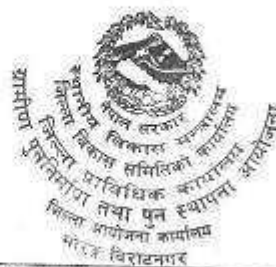 नेपाल सरकार
स्थानीय विकास मन्त्रालय
जिल्ला विकास समितिको कार्यालय
जिल्ला प्राविधिक कार्यालय
ग्रामीण पुनर्निमाण तथा पुन स्थापना आयोजना
जिल्ला आयोजना कार्यालय
मोरङ विराटनगर